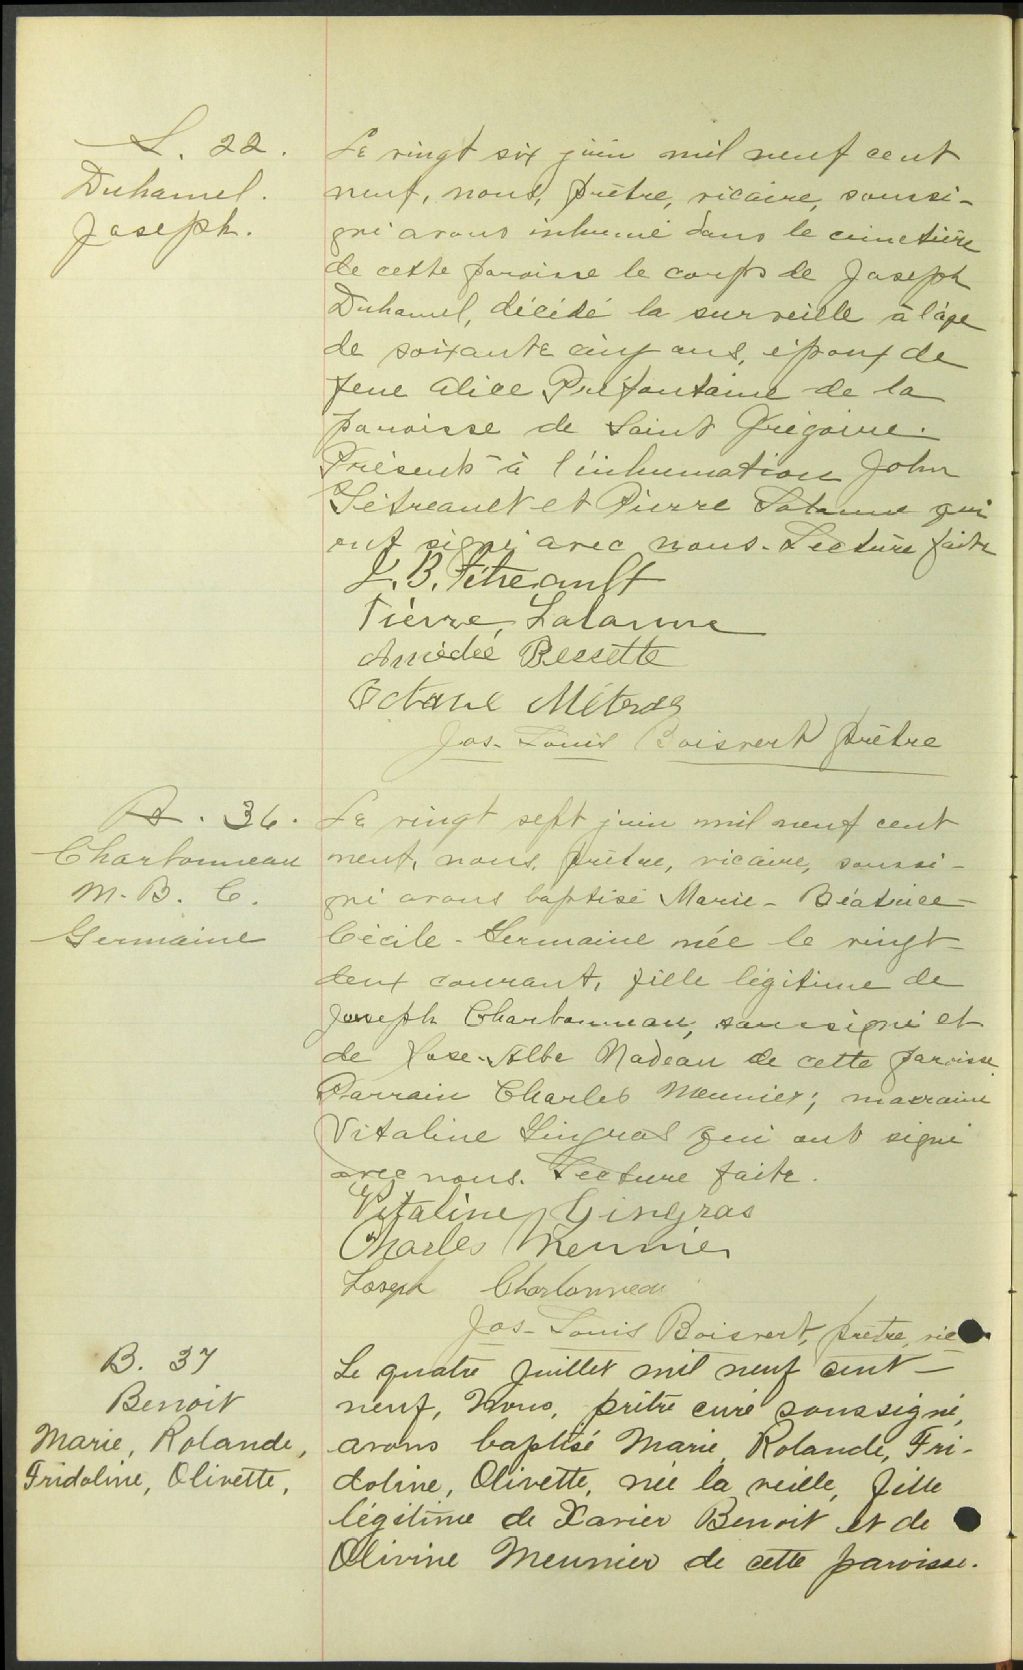 S. 22.
Duhamel.
Joseph.
Le vingt six juin mil neuf cent
neuf, nous, prêtre, vicaire, soussi-
gné avons inhumé dans le cimetière
de cette paroisse le corps de Joseph
Duhamel, décédé la surveille à l'âge
de soixante cinq ans, époux de
feue Alice Préfontaine de la
paroisse de Saint Grégoire.
Présents à l'inhumation John
Tétreault et Pierre Lalanne qui
ont signé avec nous. Lecture faite
J. B. Tétreault
Pierre Lalanne
Amédée Bessette
Octave
Jos. Louis Boisvert prêtre
B. 36.
Charbonneau
M. B. C.
Germaine
Le vingt sept juin mil neuf cent
neuf, nous, prêtre, vicaire, soussi-
gné avons baptisé Marie-Béatrice-
Cécile-Germaine née le vingt-
deux courant, fille légitime de
Joseph Charbonneau, soussigné et
de Rose-Alba Nadeau de cette paroisse.
Parrain Charles Meunier; marraine
Vitaline Gingras qui ont signé
avec nous. Lecture faite.
Vitaline Gingras
Charles Meunier
Joseph Charbonneau
Jos-Louis Boisvert, prêtre, vic
B. 37
Benoit
Marie, Rolande,
Fridoline, Olivette,
Le quatre juillet mil neuf cent-
neuf, Nous, prêtre curé soussigné,
avons baptisé Marie, Rolande, Fri-
doline, Olivette, née la veille, fille
légitime de Xavier Benoit et de
Olivine Meunier de cette paroisse.